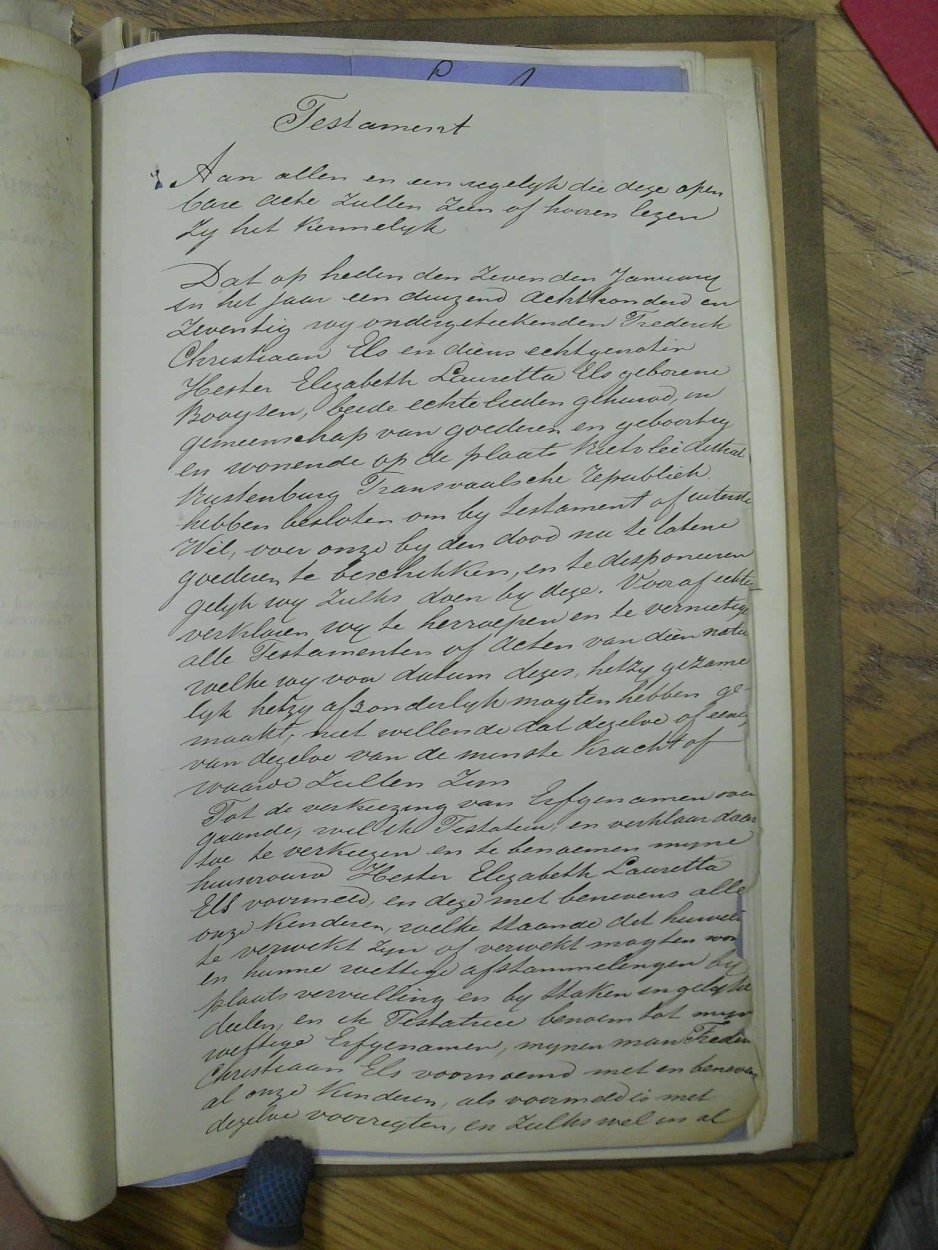 Testament
Aan allen en een iegelyk die deze open
bare acte Zullen Zien of hooren lezen
Zy het Kennelyk
Dat op heden den Zevenden January
in het jaar een duizend Achthonderd en
Zeventig wy ondergeteekenden Frederik
Christiaan Els en diens echtgenotin
Hester Elizabeth Lauretta Els geborene
Booysen, beide echtelieden gehuwd, in
gemeenschap van goederen en geboortig
en wonende op de plaats Rietvlei
Rustenburg Transvaalsche republiek.
hebben besloten om by testament of uiterste
Wil, over onze by den dood na te latene
goederen te beschikken, en te disponeeren
gelyk wy Zulks doen by deze. Vooraf echter
verklaren wy te herroepen en te vernietigen
alle Testamenten of Acten van dien natuur
welke wy voor datum dezes, hetzy gezame
lyk hetzy afzonderlyk mogten hebben ge-
maakt, niet willende dat dezelve of eenig
van dezelve van de minste Kracht of
waarde Zullen Zyn
Tot de verkiezing van Erfgenamen over
gaande, wil ik Testateur, en verklaar daar
toe te verkiezen en te benoemen myne
huisvrouw Hester Elizabeth Lauretta
Els voormeld, en deze met benevens alle
onze Kinderen, welke staande dit huwel-
te verwekt Zyn of verwekt mogten wor
en hunne wettige afstammelingen by
plaatsvervulling en by Staken in gelyke
deelen, en ik Testatrice benoem tot myn
wettige Erfgenamen, mynen man Freder
Christiaan Els voornoemd met en beneven
al onze Kinderen, als voormeld is met
dezelve voorregten, en Zulks wel in al